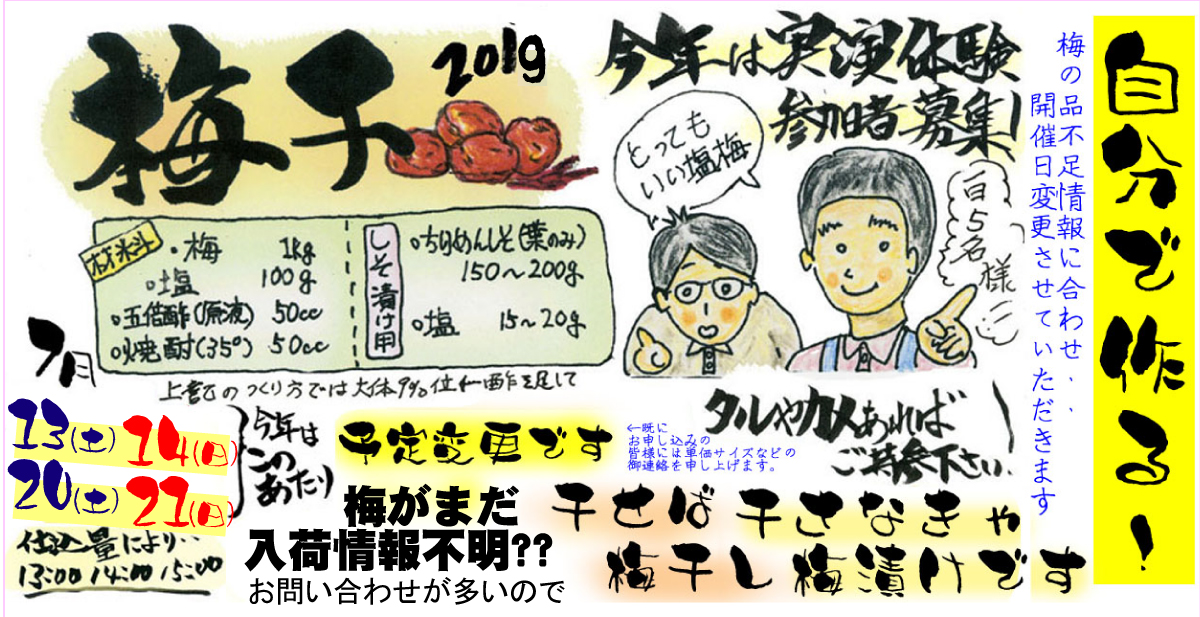 梅干
2019
今年は実演体験
参加者募集!
自分で作る!
梅の品不足情報に合わせ・・
開催日変更させていただきます
とっても
いい塩梅
一日5名様
材料
・梅 1kg
○塩 100g
○五倍酢(原液) 50cc
○焼酎(35°) 50cc
しそ漬け用
○ちりめんしそ(葉のみ)
150〜200g
○塩 15〜20g
のつくり方では大体9%位
7月
13(土) 14(日)
20(土) 21(日)
今年は
このあたり
仕込量により・・
13:00 14:00 15:00
予定変更です
←既に
お申し込みの
皆様には単価サイズなどの
御連絡を申し上げます。
タルやカメあれば
ご持参下さい
梅がまだ
入荷情報不明??
お問い合わせが多いので
干せば干さなきゃ
梅干し梅漬けです